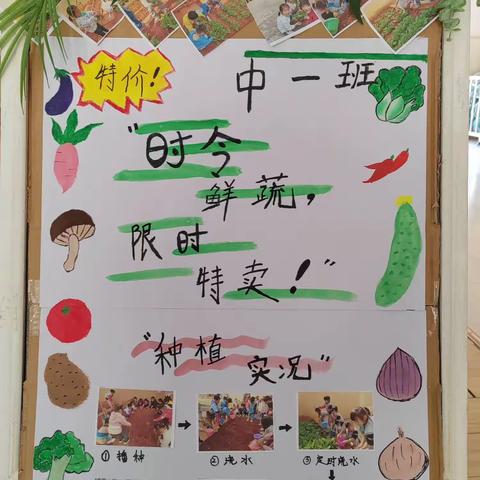 特价!
中一班
"时令
鲜蔬,
限时
特卖!"
"种植
实况"
①播种
②浇水
③定时浇水